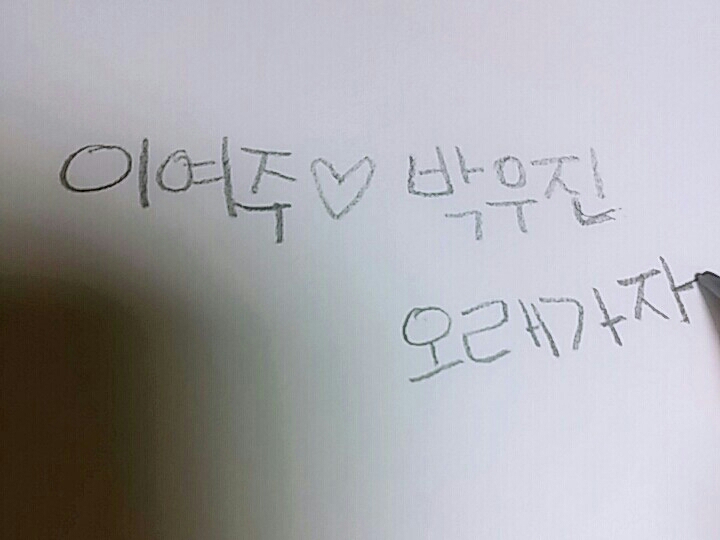 이여주♡박우진
오래가자